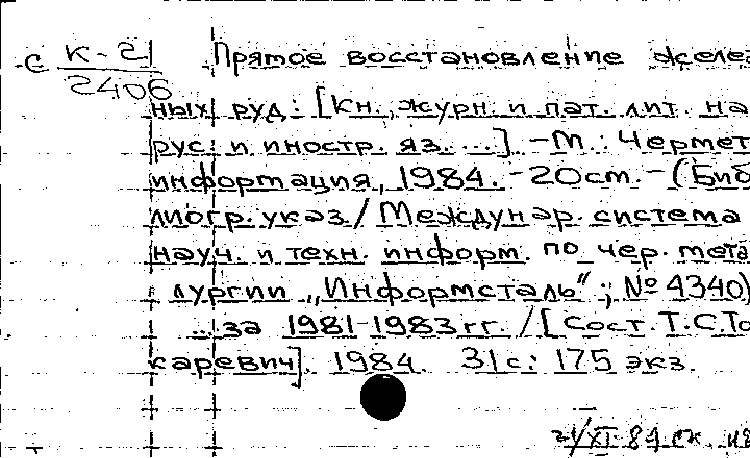 С К-21 Прямое восстановление желез
2406
ных руд: [Кн., журн. и пат. лит. на
рус. и иностр. яз. ...] -М.: Чермет
информация, 1984. -20см. -(Биб
лиогр. указ./Междунар. система
науч. и техн. информ. по чер. мета
лургии „Информсталь"; № 4340)
...за 1981-1983 гг. /[Сост. Т.С.То
каревич]. 1984. 31 с.: 175 экз.
21/XI-84 ск.